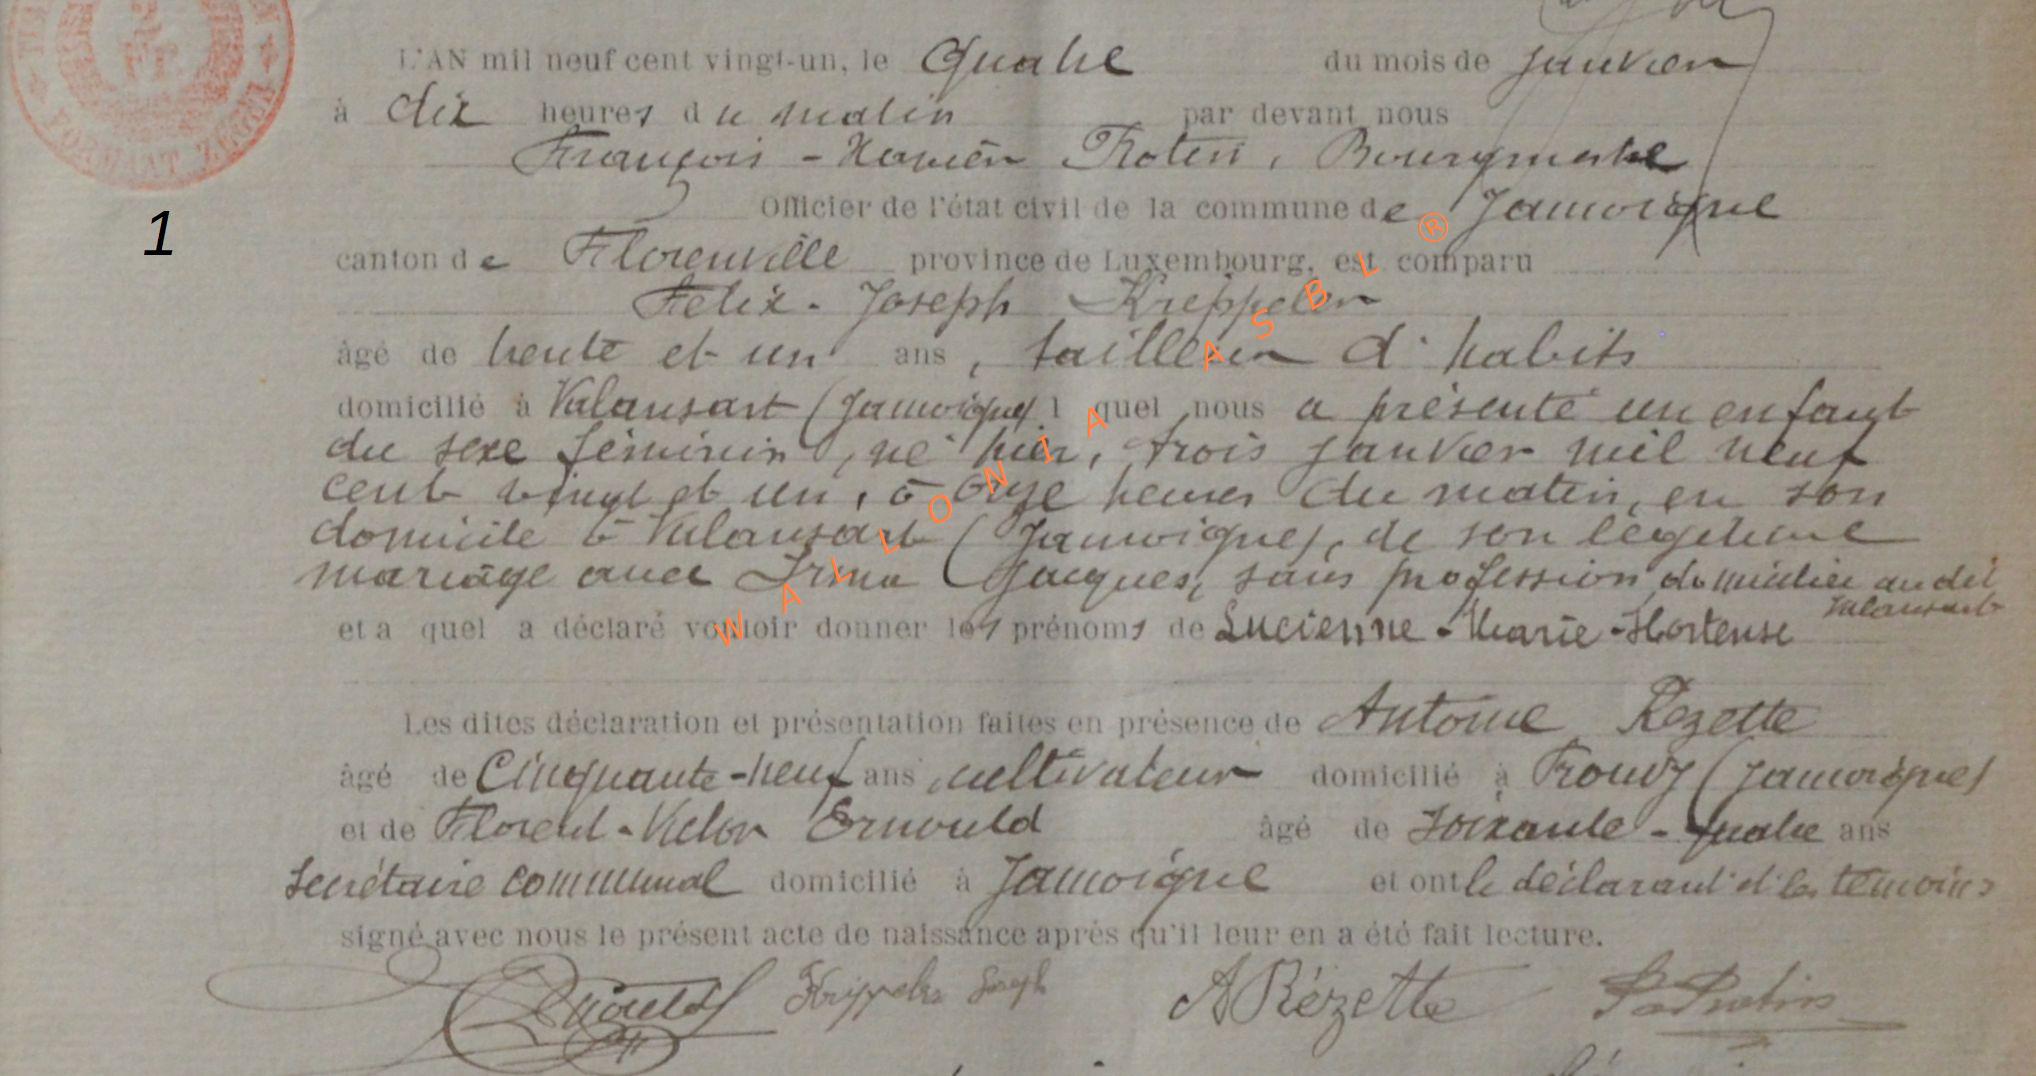 FORMAAT ZEGEL
1
L'AN mil neuf cent vingt-un, le Quatre du mois de janvier
à dix heures du matin par devant nous
François-Xavier Rotin, Bourgmestre
Officier de l'état civil de la commune de Jamoigne
canton de Florenville province de Luxembourg, est comparu
Felix-Joseph Kreppeler
âgé de trente et un ans, tailleur d'habits
domicilié à Valansart (Jamoigne) l quel nous a présenté un enfant
du sexe féminin, né hier, trois janvier mil neuf
cent vingt et un, à onze heures du matin, en son
domicile à Valansart (Jamoigne), de son légitime
mariage avec Irma Jacques, sans profession, domiciliée au dit
Valansart
et a quel a déclaré vouloir donner les prénoms de Lucienne-Marie-Hortense
Les dites déclaration et présentation faites en présence de Antoine Rezette
âgé de Cinquante-neuf ans, cultivateur domicilié à Prouvy (Jamoigne)
et de Florent-Victor Ernould âgé de soixante-quatre ans
secrétaire communal domicilié à Jamoigne et ont le déclarant et les témoins
signé avec nous le présent acte de naissance après qu'il leur en a été fait lecture.
Joseph A Rézette
WALLONIA ASBL ®